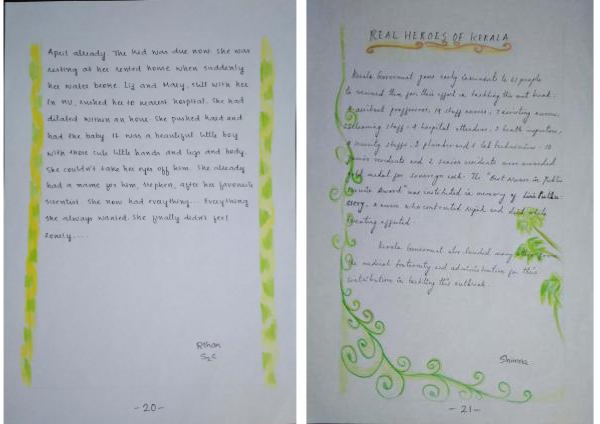 April already. The kid was due now. She was
resting at her rented home when suddenly
her water broke. Liz and Mary, still with her
in NJ, rushed her to nearest hospital. She had
dilated within an hour. She pushed hard and
had the baby. It was a beautiful little boy
with those cute little hands and legs and body.
She couldn't take her eyes off him. She already
had a name for him, Stephen, after his favourite
scientist. She now had evything... Everything
she always wanted. She finally didn't feel
lonely....
Rihan
S2C
-20-
REAL HEROES OF KERALA
Kerala Government gave early increments to 61 people
to reward them for their effort in tackling the out break.
4 assistant proffessors, 19 staff nurses, 7 nursing
cleaning staff, 4 hospital attenders, 2 health inspectors,
4 security staffs, 1 plumber and 3 lab technicians. 12
junior residents and 2 senior residents were awarded
gold medal for sovereign each. The "Best Nurse in Public
Service Award" was instituted in memory of Lini Puthu-
ssery, a nurse who contracted Nipah and died while
treating affected.
Kerala Government also lauded many
the medical fraternity and administration for their
contribution in tackling this outbreak.
-21-